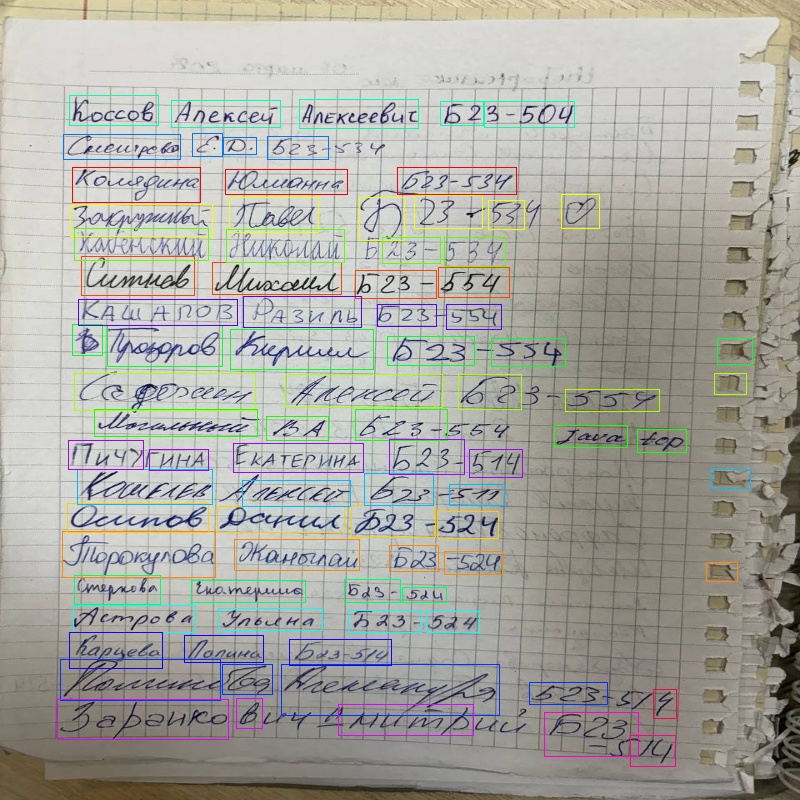 Коссов Алексей Алексеевич Б23-504
Сметрова Е.Д. Б23-534
Колядина Юлианна Б23-534
Закружный Павел Б23-534
Хабенский Николай Б23-534
Ситнев Михаил Б23-554
КАШАПОВ РАЗИЛЬ Б23-554
Прозоров Кирилл Б23-554
Алексей Б23-554
Могильный ВА Б23-554 Java top
ПИЧУГИНА ЕКАТЕРИНА Б23-514
Кошелев Алексей Б23-511
Осипов Данил Б23-524
Торокулова Жанылай Б23-524
Стеркова Екатерина Б23-524
Астрова Ульяна Б23-524
Карцева Полина Б23-514
Александра Б23-514
Заранкович Дмитрий Б23
-514